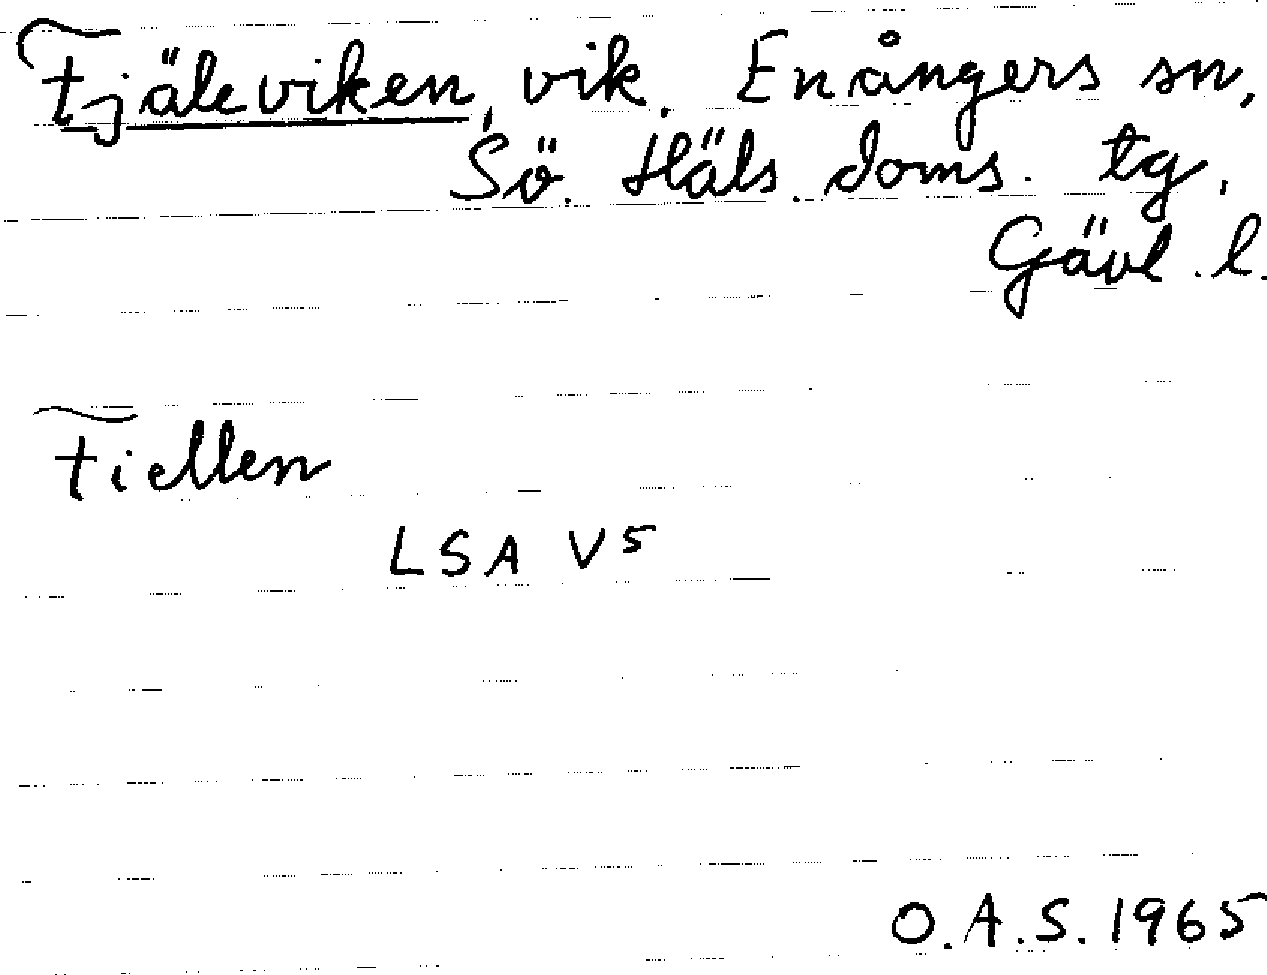 Fjäleviken, vik. Enångers sn,
Sö. Häls. doms. tg,
Gävl. l.
Fiellen
LSA V5
O.A.S. 1965